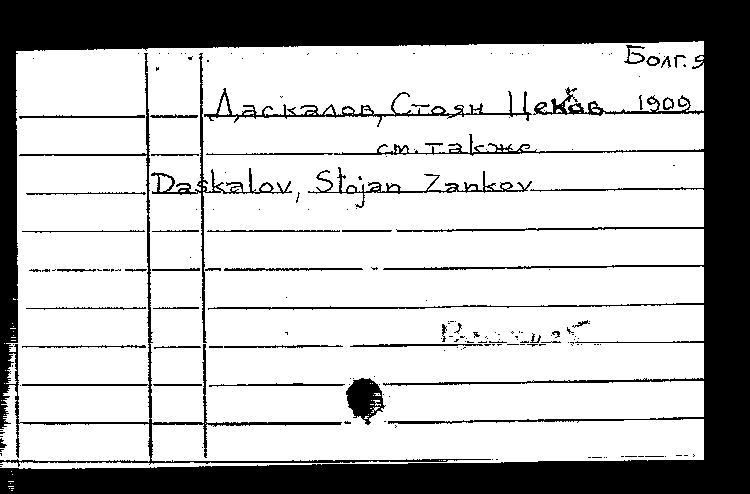 Болг. я
Даскалов, Стоян Цеков 1909
см. также
Daskalov, Stojan Zankov